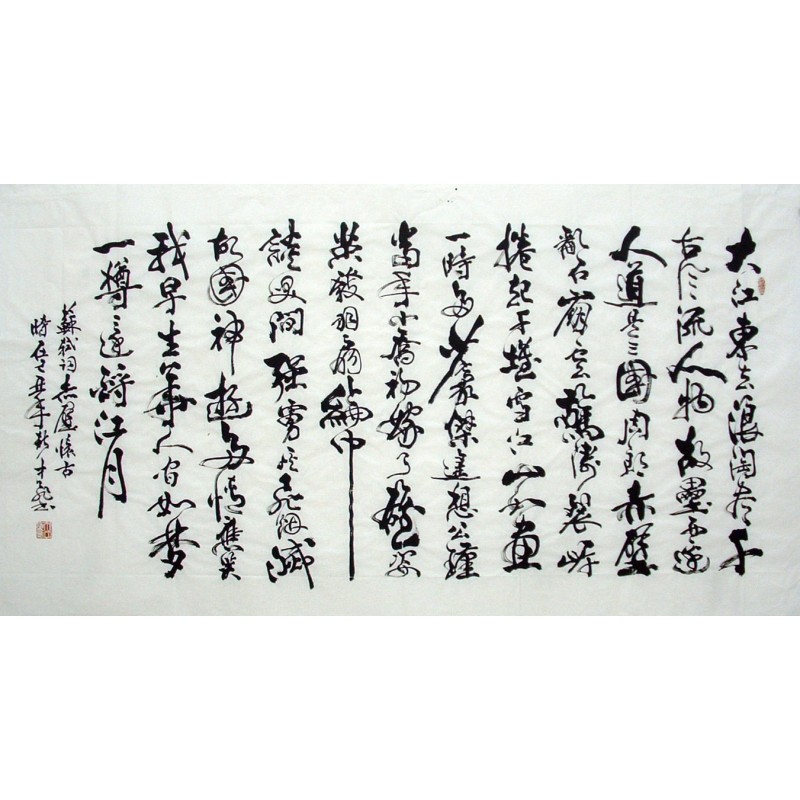 大江東去浪淘尽千
古風流人物故壘西邊
人道是三國周郎赤壁
亂石崩雲驚濤裂岸
捲起千堆雪江山如畫
一時多少豪傑遙想公瑾
當年小喬初嫁了雄姿
英發羽扇綸巾
談笑間強虜灰飛煙滅
故國神遊多情應笑
我早生華人间如梦
一樽還酹江月
蘇軾詞赤壁懷古
時在丑年秋